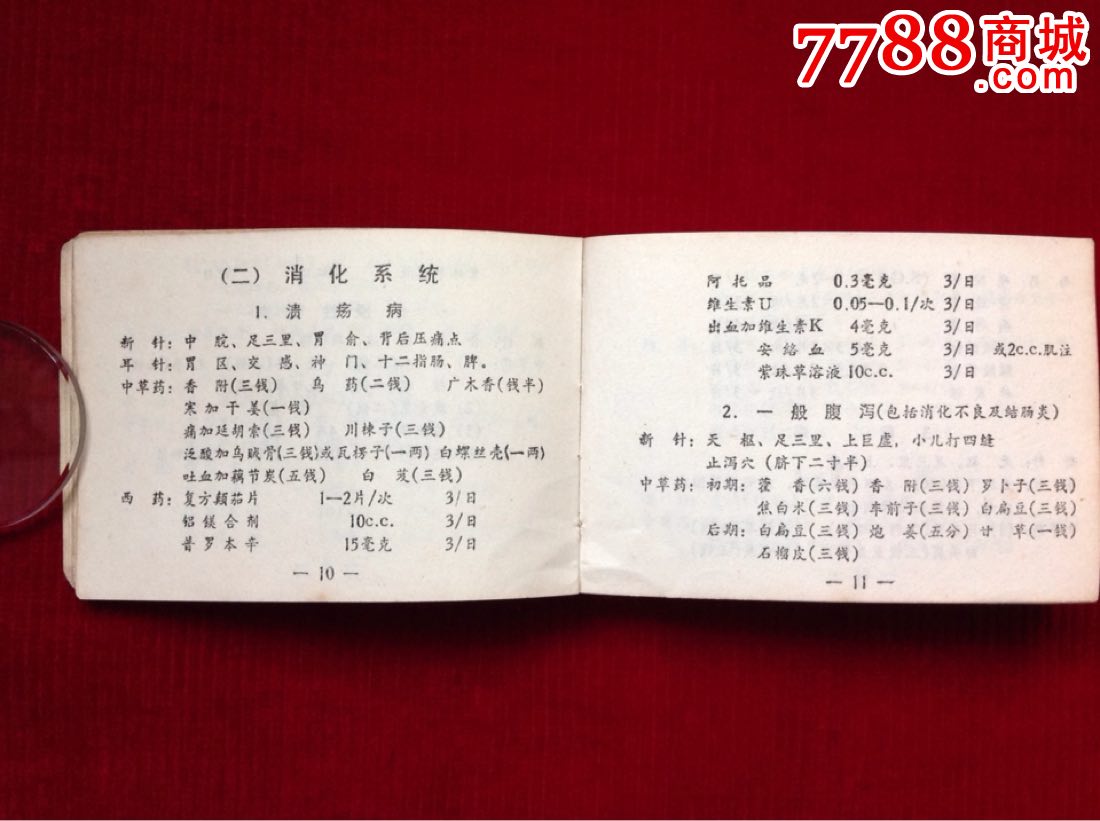 7788商城
.com
(二) 消化系统
1. 溃疡病
新针: 中脘、足三里、胃俞、背后压痛点
耳针: 胃区、交感、神门、十二指肠、脾。
中草药: 香附(三钱) 乌药(二钱) 广木香(钱半)
寒加干姜(一钱)
痛加延胡索(三钱) 川楝子(三钱)
泛酸加乌贼骨(三钱)或瓦楞子(一两)白螺丝壳(一两)
吐血加藕节炭(五钱) 白芨(三钱)
西药: 复方颠茄片 1—2片/次 3/日
铝镁合剂 10c.c. 3/日
普罗本辛 15毫克 3/日
— 10 —
阿托品 0.3毫克 3/日
维生素U 0.05—0.1/次 3/日
出血加维生素K 4毫克 3/日
安络血 5毫克 3/日 或2c.c.肌注
紫珠草溶液 10c.c. 3/日
2. 一般腹泻(包括消化不良及结肠炎)
新针: 天枢、足三里、上巨虚, 小儿打四缝
止泻穴 (脐下二寸半)
中草药: 初期: 藿香(六钱) 香附(三钱) 罗卜子(三钱)
焦白术(三钱) 车前子(三钱) 白扁豆(三钱)
后期: 白扁豆(三钱) 炮姜(五分) 甘草(一钱)
石榴皮(三钱)
— 11 —